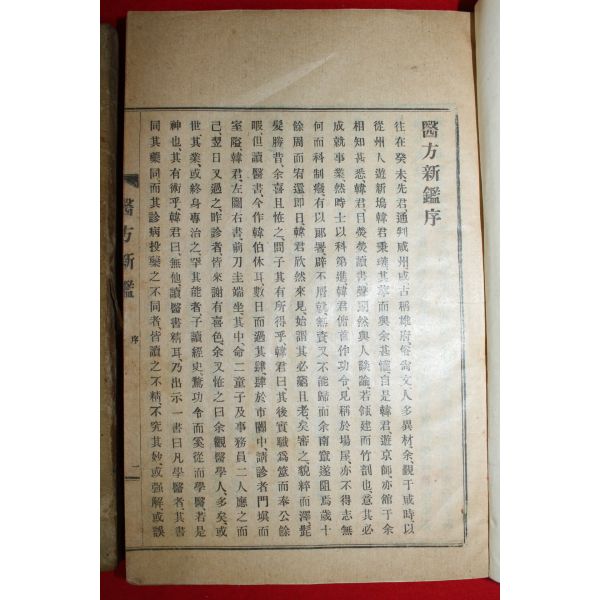 醫方新鑑序
往在癸未先君通判咸州咸古稱雄府俗尙文人多異材余觀于咸時以
從州人遊新塢韓君秉璉其寧而與余甚懽自是韓君遊京師亦館于余
相知甚悉韓君日熒熒讀書聲琅然與人談論若瓴建而竹剖也意其必
成就事業然時士以科第進韓君俯首作功令見稱於場屋亦不得志無
何而科制廢有以郞署辟不屑就無資又不能歸而余南竄遂阻焉歲十
餘周而宥還卽日韓君欣然來見始謂其必窮且老矣審之貌粹而澤髭
髮勝昔余喜且恠之問子其有所得乎韓君曰其後實職爲筮而奉公餘
暇但讀醫書今作韓伯休耳數日而過其肆肆於市闤中請診者門塡而
室隘韓君左圖右書前刀圭端坐其中命二童子及事務員二人應之而
已翌日又過之昨診者皆來謝有喜色余又恠之曰余觀醫學人多矣或
世其業或終身專治之罕其能者子讀經史騖功令而奚從而學醫者是
神也其有術乎韓君曰無他讀醫書精耳乃出示一書曰凡學醫者其書
同其藥同而其診病投藥之不同者皆讀之不精不究其妙或强解或誤
醫方新鑑
序
一